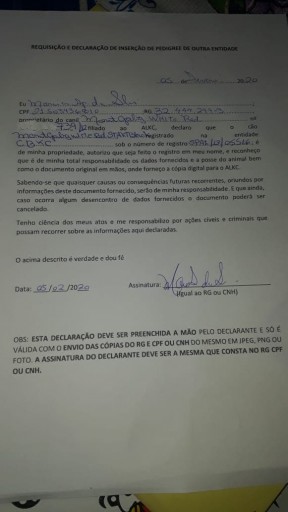 REQUISIÇÃO E DECLARAÇÃO DE INSERÇÃO DE PEDIGREE DE OUTRA ENTIDADE
Eu
CPF RG
proprietário do canil
filiado ao ALKC, declaro que o cão
registrado na entidade
CBKC sob o número de registro e
de minha propriedade, autorizo que seja feita o registro em meu nome, e reconheço
que é de minha total responsabilidade os dados fornecidos e a posse do animal bem
como o documento original em mãos, onde forneço a cópia digital para o ALKC.
Sabendo-se que quaisquer causas ou consequências futuras recorrentes, oriundos por
informações deste documento fornecido, serão de minha responsabilidade. E que ainda,
caso ocorra algum desencontro de dados fornecidos o documento poderá ser
cancelado.
Tenho ciência dos meus atos e me responsabilizo por ações cíveis e criminais que
possam recorrer sobre as informações aqui declaradas.
O acima descrito é verdade e dou fé
Data: 05/02/2020 Assinatura:
(Igual ao RG ou CNH)
OBS: ESTA DECLARAÇÃO DEVE SER PREENCHIDA A MÃO PELO DECLARANTE E SÓ É
VÁLIDA COM O ENVIO DAS CÓPIAS DO RG E CPF OU CNH DO MESMO EM JPEG, PNG OU
FOTO. A ASSINATURA DO DECLARANTE DEVE SER A MESMA QUE CONSTA NO RG CPF
OU CNH.